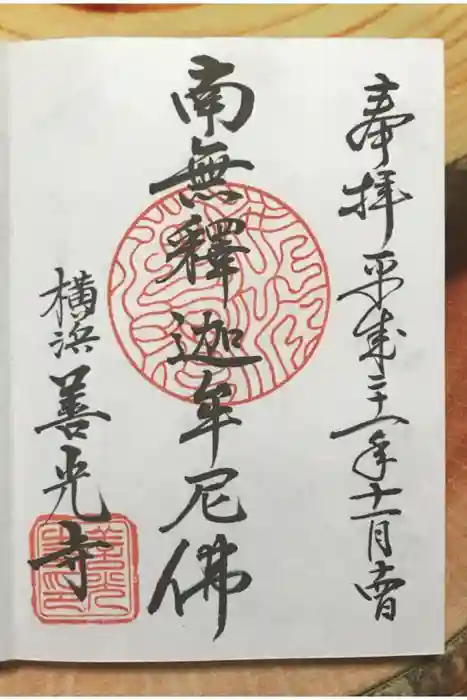 奉拝 平成二十一年十一月
南無釋迦牟尼佛
横浜 善光寺